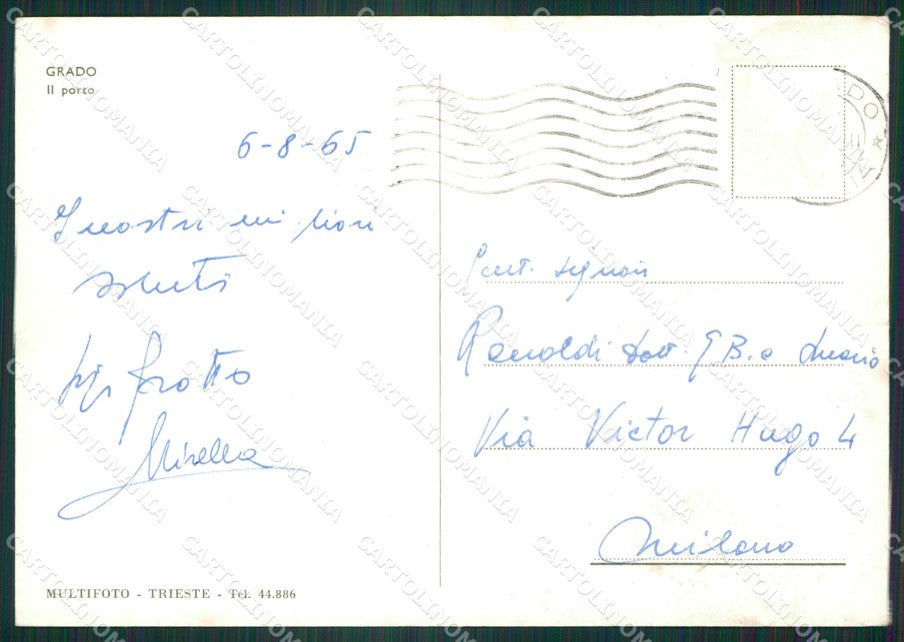 GRADO
Il porto
6-8-65
I nostri migliori
saluti
Gigi Grotto
Mirella
MULTIFOTO - TRIESTE - Tel. 44.886
Gent. signori
Ranoldi Dott. G B. e
Via Victor Hugo 4
Milano
CARTOLINOMANIA